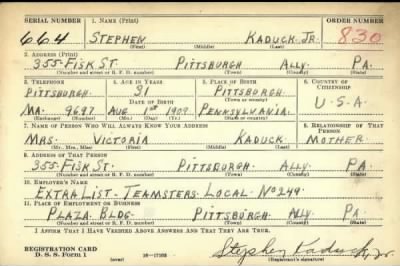 SERIAL NUMBER 1. NAME (Print) ORDER NUMBER
664 STEPHEN KADUCK JR. 830
(First) (Middle) (Last)
2. ADDRESS (Print)
355-FISK ST. PITTSBURGH ALLY. PA.
(Number and street or R. F. D. number) (Town) (County) (State)
3. TELEPHONE 4. AGE IN YEARS 5. PLACE OF BIRTH 6. COUNTRY OF CITIZENSHIP
PITTSBURGH 31 PITTSBURGH
DATE OF BIRTH (Town or county) U.S.A
MA. 9697 AUG 1ST 1909 PENNSYLVANIA.
(Exchange) (Number) (Mo.) (Day) (Yr.) (State or country)
7. NAME OF PERSON WHO WILL ALWAYS KNOW YOUR ADDRESS 8. RELATIONSHIP OF THAT PERSON
MRS. VICTORIA KADUCK MOTHER.
(Mr., Mrs., Miss) (First) (Middle) (Last)
9. ADDRESS OF THAT PERSON
355-FISK ST. PITTSBURGH ALLY. PA.
(Number and street or R. F. D. number) (Town) (County) (State)
10. EMPLOYER'S NAME
EXTRA LIST-TEAMSTERS LOCAL NO 249.
11. PLACE OF EMPLOYMENT OR BUSINESS
PLAZA BLDG- PITTSBURGH ALLY PA.
(Number and street or R. F. D. number) (Town) (County) (State)
I AFFIRM THAT I HAVE VERIFIED ABOVE ANSWERS AND THAT THEY ARE TRUE.
REGISTRATION CARD Stephen Kaduck, Jr.
D. S. S. Form 1 (over) 16-17105 (Registrant's signature)